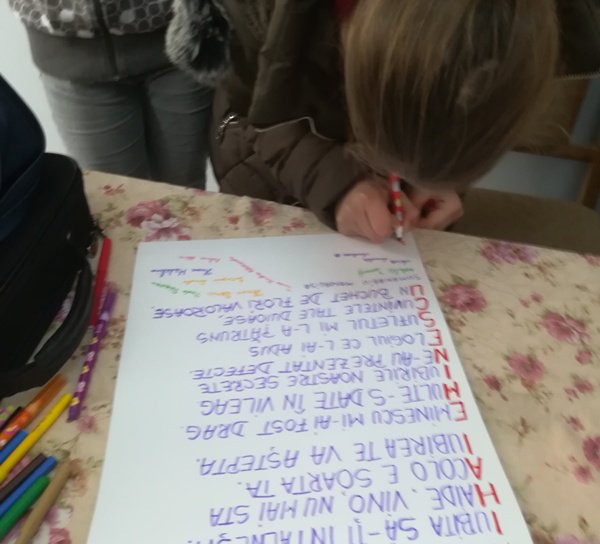 IUBITA SĂ-ȚI ÎNTÂLNEȘTI.
HAIDE, VINO, NU MAI STA
ACOLO E SOARTA TA.
IUBIREA TE VA AȘTEPTA.
EMINESCU MI-AI FOST DRAG.
MULTE-S DATE ÎN VILEAG
IUBIRILE NOASTRE SECRETE
NE-AU PREZENTAT DEFECTE.
ELOGIUL CE L-AI ADUS
SUFLETUL MI L-A PĂTRUNS
CUVINTELE TALE DUIOASE.
UN BUCHET DE FLORI VALOROASE.